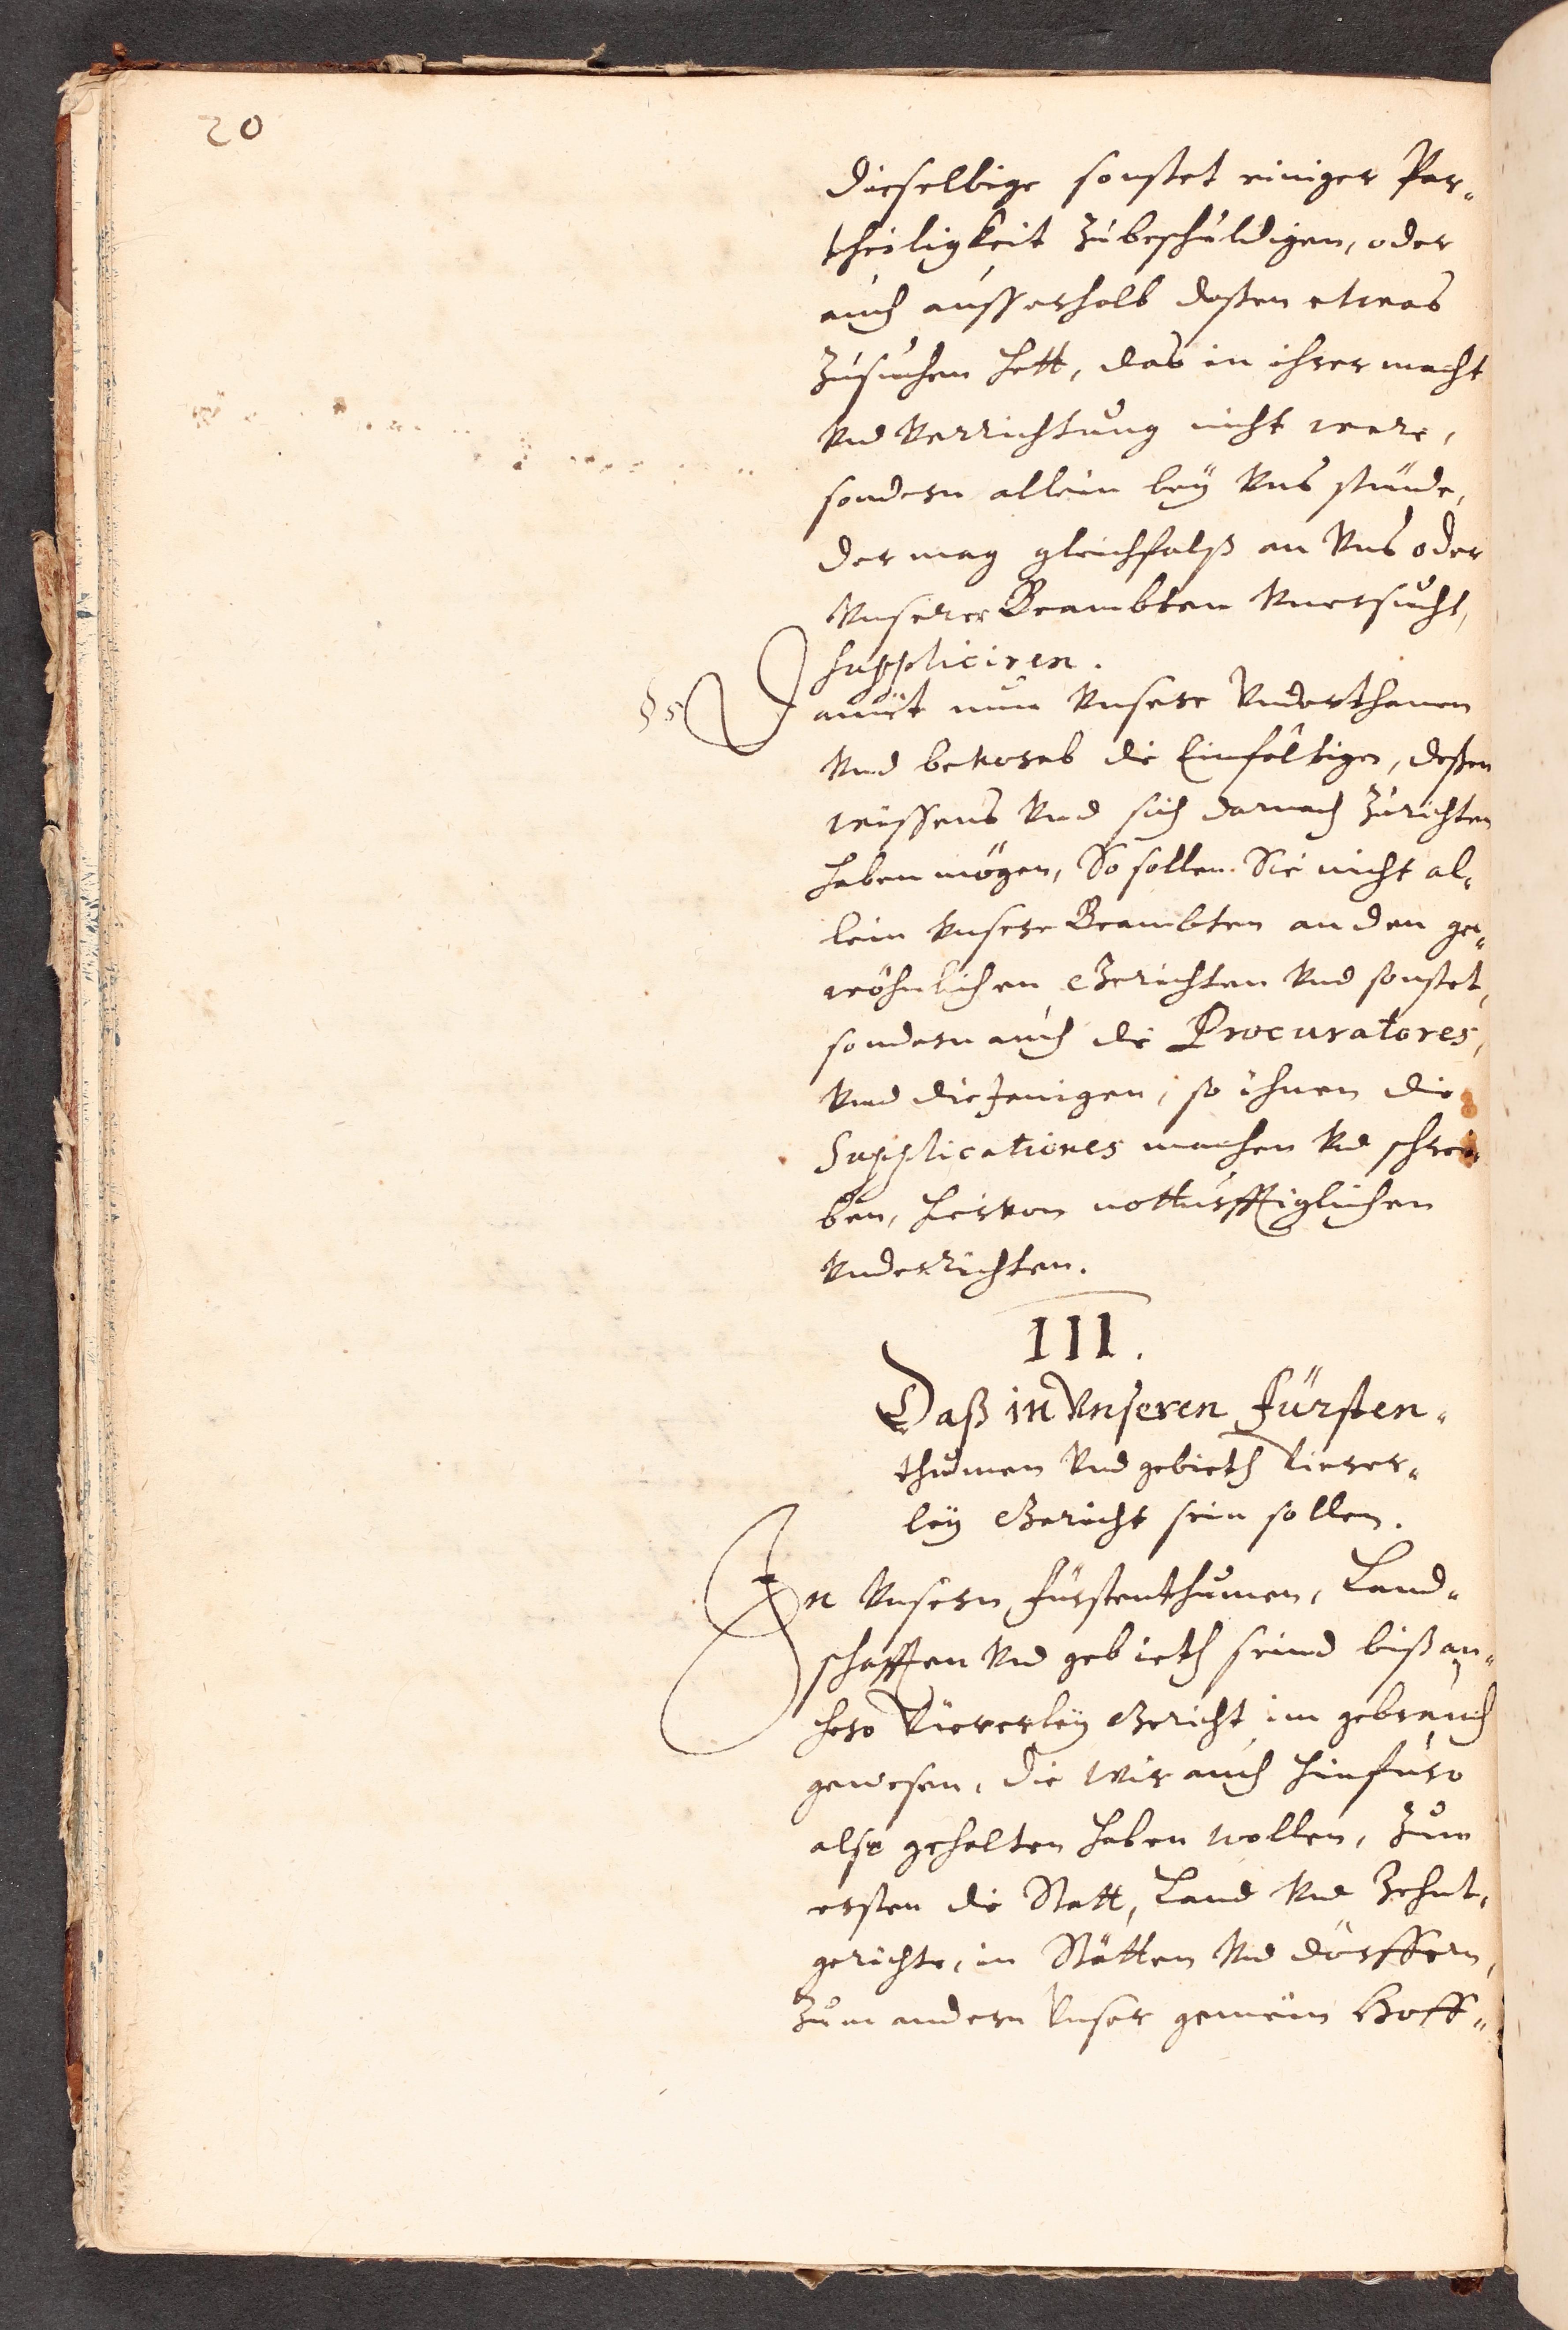 20
dieselbige sonstet einiger Par„
theiligkeit zubeschuldigen, oder
auch ausserhalb deßen etwas
zusuchen hett, das in ihrer macht
Vnd Verrichtung nicht were,
sondern allein beÿ Vns stünde,
der mag gleichfalß an Vns oder
Vnserer Beambten Vnersucht,
suppliciren.
§ 5 Damit nun Vnsere Vnderthanen
Vnd bevorab die Einfältigen, deßen
wissens Vnd sich darnach Zurichten
haben mögen, So sollen Sie nicht al„
lein Vnsere Beambten an den ge„
wöhnlichen Gerichten Vnd sonstet,
sondern auch die Procuratores,
Vnd die Jenigen, so ihnen die
Supplicationes machen Vnd schrei„
ben, hiervon notturfftiglichen
Vnderrichten.
III.
Daß in Vnseren Fürsten„
thumen Vnd gebieth Vierer„
leÿ Gericht sein sollen.
In Vnsern Fürstenthumen, Land„
schafften Vnd gebieth seind biß an„
hero Viererleÿ Gericht im gebrauch
gewesen, die Wir auch hinfüro
also gehalten haben wollen, Zum
ersten die Statt, Land Vnd Zehnt„
gerichte, in Stätten Vnd dörffern,
Zum andern Vnser gemein Hoff„